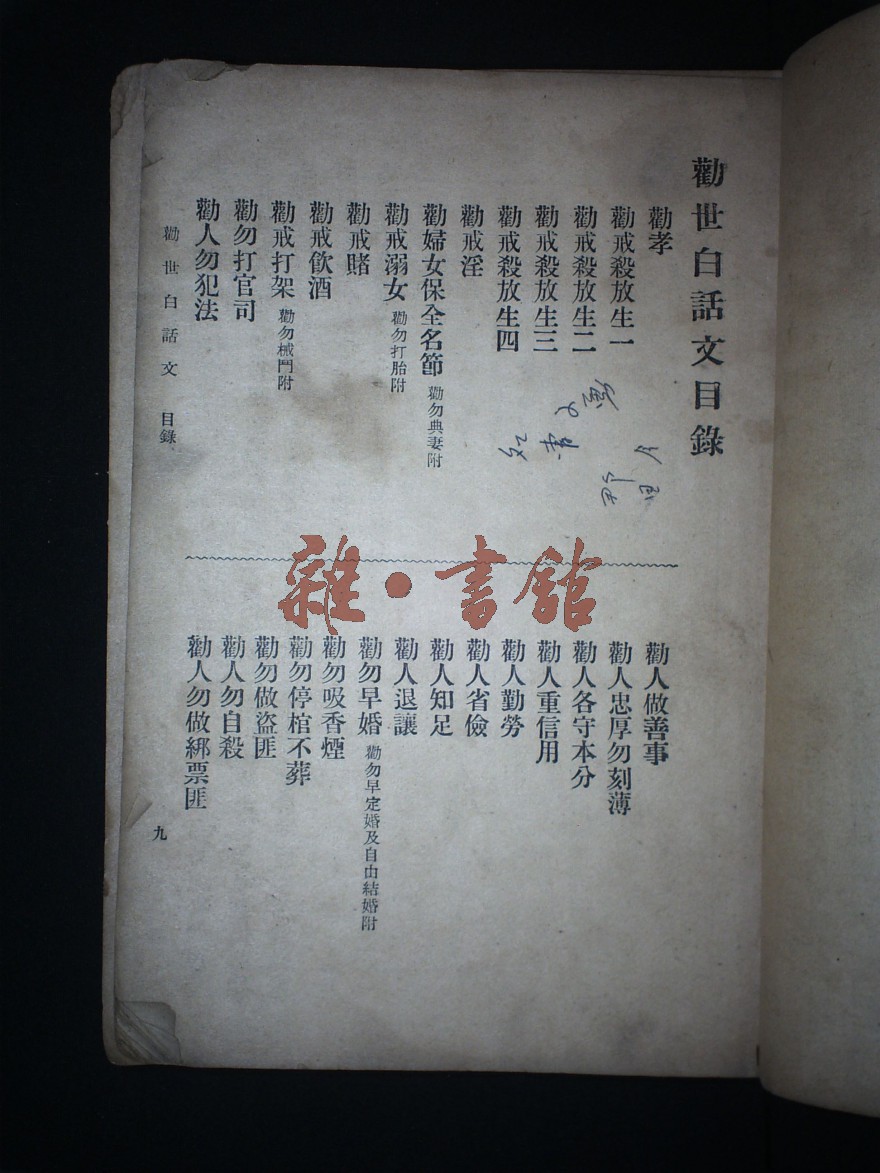 勸世白話文目錄
勸孝
勸戒殺放生一
勸戒殺放生二
勸戒殺放生三
勸戒殺放生四
勸戒淫
勸婦女保全名節 勸勿典妻附
勸戒溺女 勸勿打胎附
勸戒賭
勸戒飲酒
勸戒打架 勸勿械鬥附
勸勿打官司
勸人勿犯法
勸人做善事
勸人忠厚勿刻薄
勸人各守本分
勸人重信用
勸人勤勞
勸人省儉
勸人知足
勸人退讓
勸勿早婚 勸勿早定婚及自由結婚附
勸勿吸香煙
勸勿停棺不葬
勸勿做盜匪
勸人勿自殺
勸人勿做綁票匪
勸世白話文 目錄
九
雜·書館